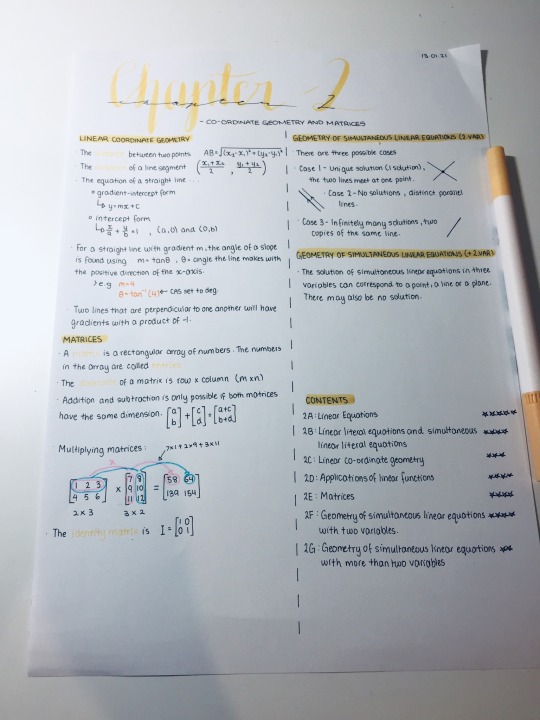 13.01.21
Chapter 2
chapter 2
- CO-ORDINATE GEOMETRY AND MATRICES
LINEAR COORDINATE GEOMETRY
· The distance between two points AB=√(x₂-x₁)²+(y₂-y₁)²
· The of a line segment (x₁+x₂/2 , y₁+y₂/2)
· The equation of a straight line ...
gradient-intercept form
↳ y=mx+c
intercept form
↳ x/a + y/b =1 , (a,0) and (0,b)
· For a straight line with gradient m, the angle of a slope
is found using m=tanθ , θ= angle the line makes with
the positive direction of the x-axis.
> e.g m=4
θ=tan⁻¹(4) ← CAS set to deg.
· Two lines that are perpendicular to one another will have
gradients with a product of -1.
MATRICES
· A matrix is a rectangular array of numbers. The numbers
in the array are called entries
· The of a matrix is row x column (m x n)
· Addition and subtraction is only possible if both matrices
have the same dimension. [a b] + [c d] = [a+c b+d]
· Multiplying matrices:
7x1+2x9+3x11
[1 2 3 x [7 8 = [58 64
4 5 6] 9 10 139 154]
11 12]
2 x 3 3 x 2
· The identity matrix is I = [1 0
0 1]
GEOMETRY OF SIMULTANEOUS LINEAR EQUATIONS (2 VAR)
There are three possible cases
· Case 1 - Unique solution (1 solution),
the two lines meet at one point.
· Case 2 - No solutions, distinct parallel
lines.
· Case 3 - Infinitely many solutions, two
copies of the same line.
GEOMETRY OF SIMULTANEOUS LINEAR EQUATIONS (+2 VAR)
· The solution of simultaneous linear equations in three
variables can correspond to a point, a line or a plane.
There may also be no solution.
CONTENTS
2A: Linear Equations *****
2B: Linear literal equations and simultaneous ****
linear literal equations
2C: Linear co-ordinate geometry ***
2D: Applications of linear functions ****
2E: Matrices ****
2F: Geometry of simultaneous linear equations ****
with two variables.
2G: Geometry of simultaneous linear equations ***
with more than two variables